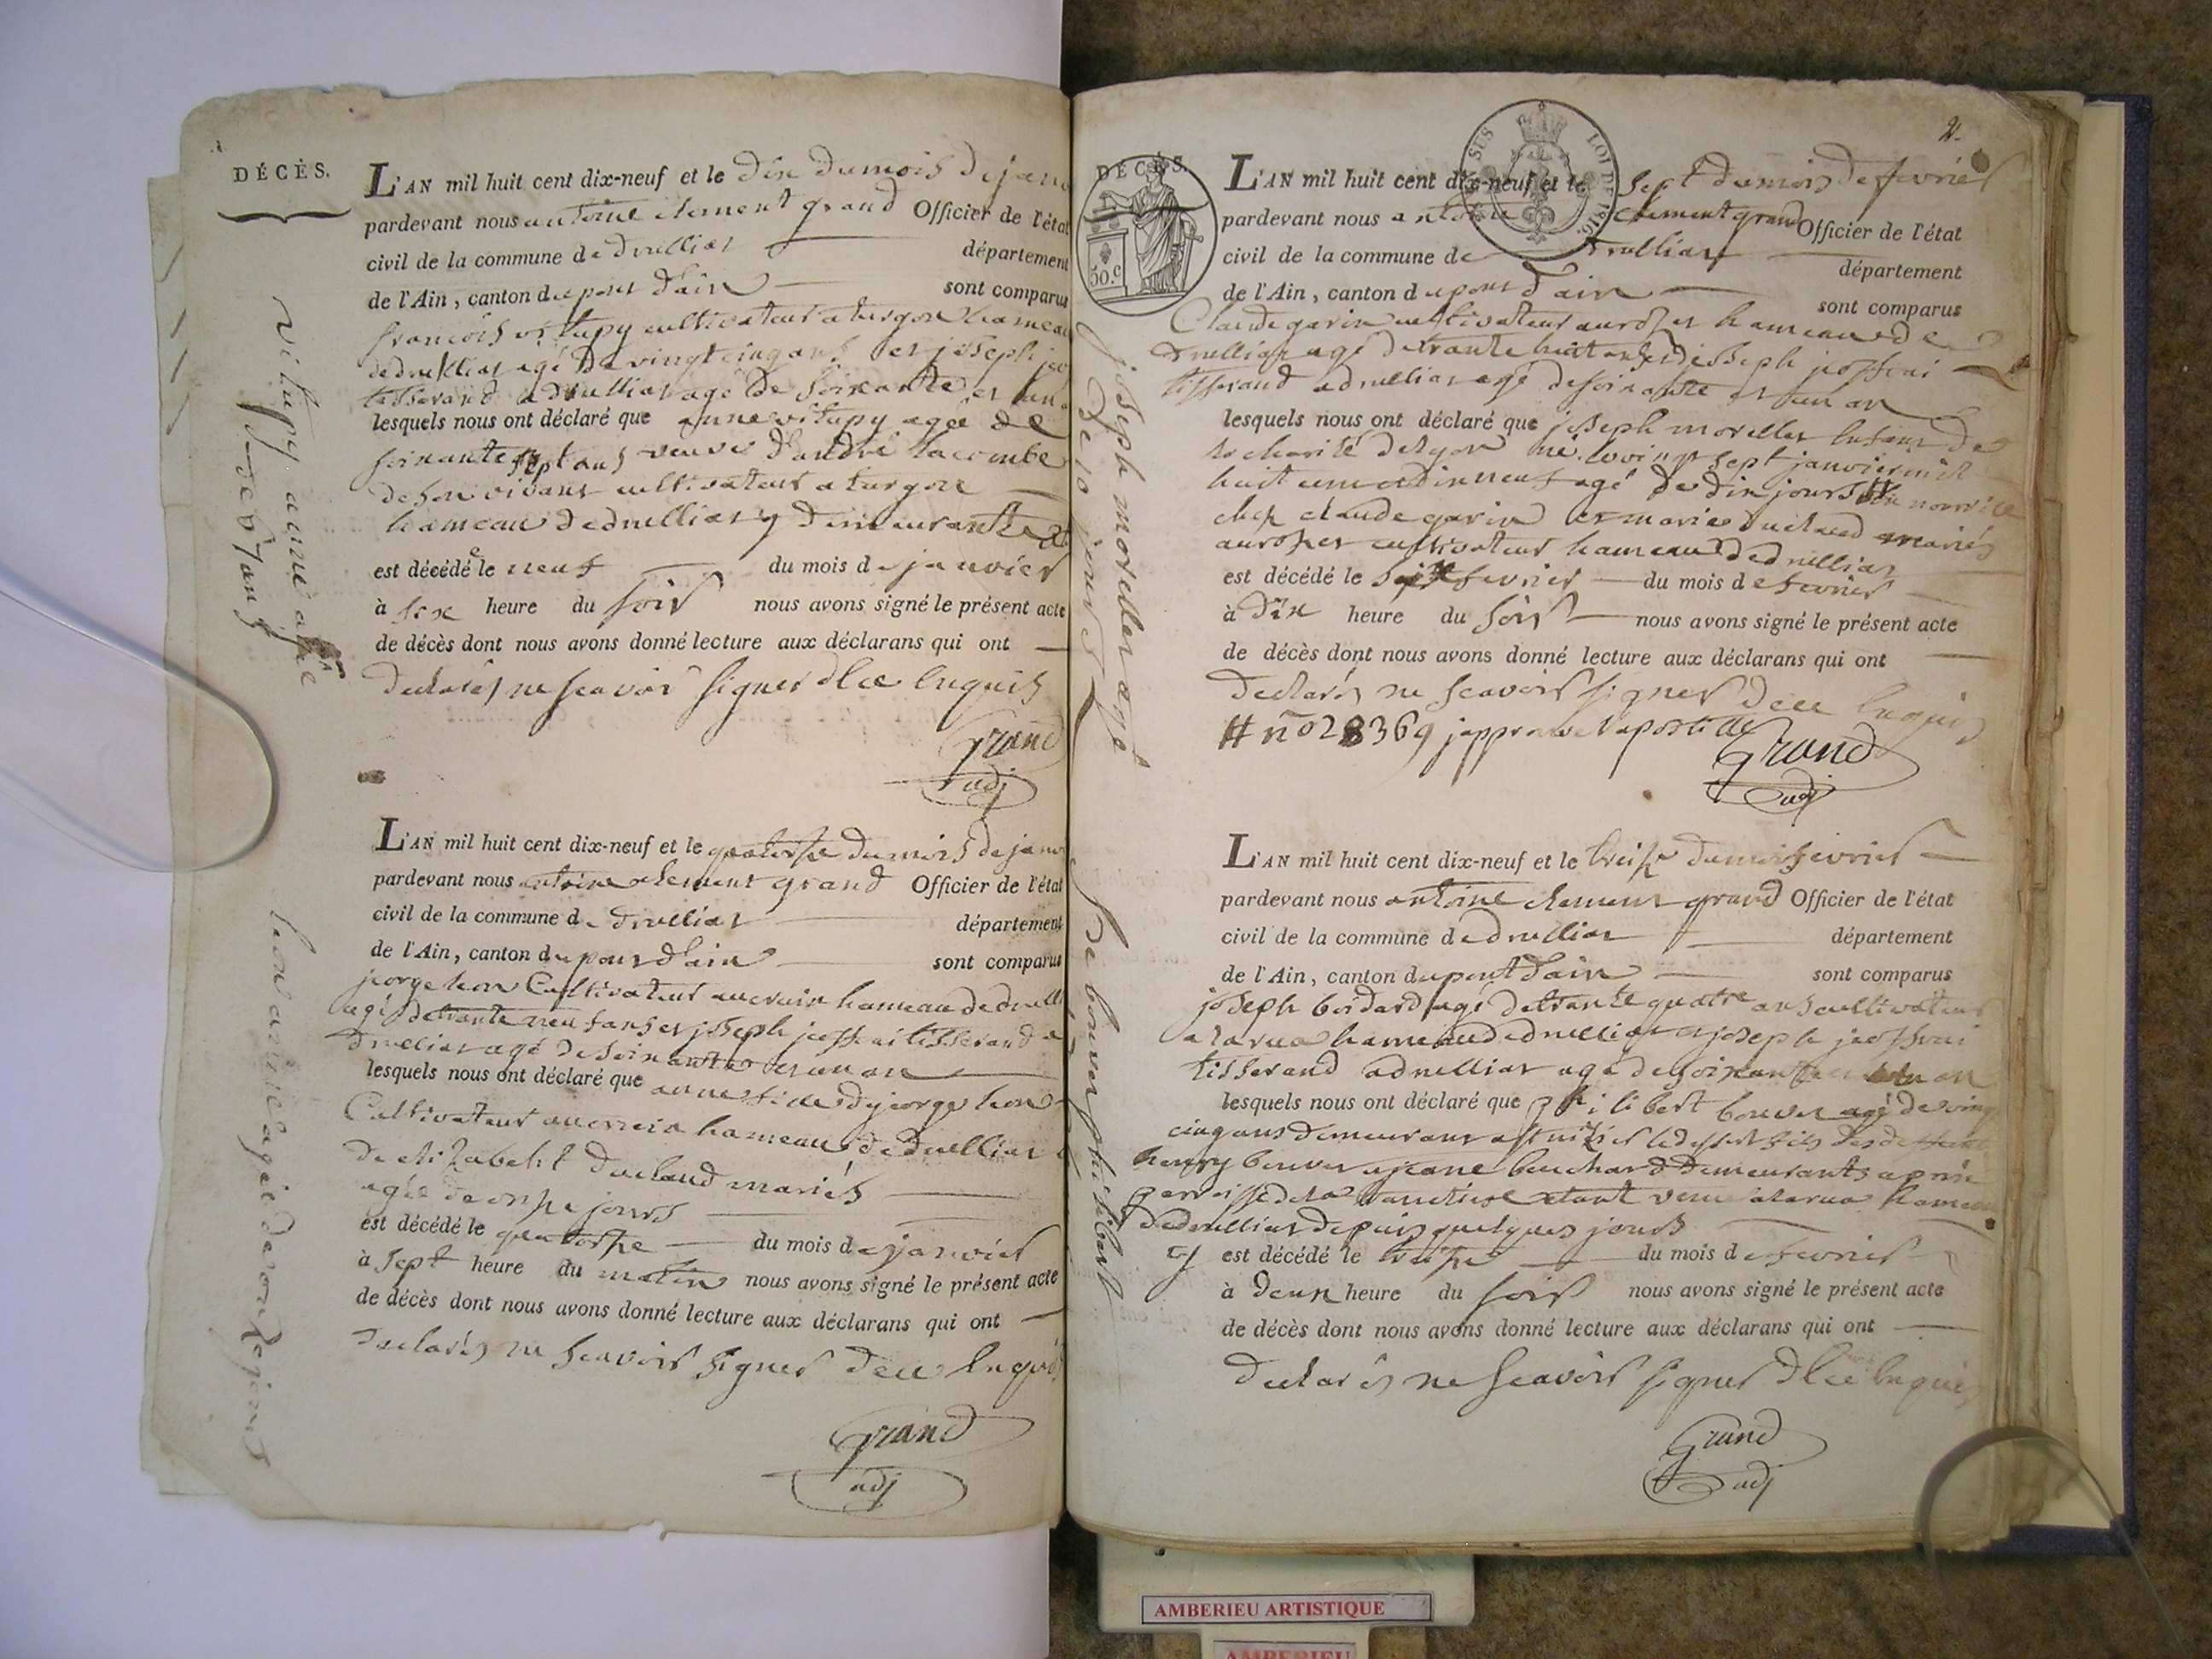 DÉCÈS.
L'AN mil huit cent dix-neuf et le dix du mois de janv
pardevant nous antoine clement grand Officier de l'état
civil de la commune de druilliat département
de l'Ain, canton du pont dain sont comparus
francois vitupy cultivateur a turgon hameau
de druilliat agé de vingt cinq ans et joseph
tisserand a druilliat agé de soixante et un
lesquels nous ont déclaré que anne vitupy agée de
soixante sept ans veuve d'andré lacombe
de son vivant cultivateur a turgon
hameau de druilliat y demeurante
est décédée le neuf du mois de janvier
à six heure du soir nous avons signé le présent acte
de décès dont nous avons donné lecture aux déclarans qui ont
declarés ne scavoir signer d'ce enquis
Grand
adj
vitupy anne agée
de 67 ans
L'AN mil huit cent dix-neuf et le quatorze du mois de janv
pardevant nous antoine clement grand Officier de l'état
civil de la commune de druilliat département
de l'Ain, canton du pont dain sont comparus
jeorge hon Cultivateur hameau de druilli
agé de trante neuf ans et joseph tisserand a
druilliat agé de soixante et un an
lesquels nous ont déclaré que anne fille de jeorge hon
Cultivateur hameau de druilliat
de elizabeht duclaud mariés
agée de onze jours
est décédé le quatorze du mois de janvier
à sept heure du matin nous avons signé le présent acte
de décès dont nous avons donné lecture aux déclarans qui ont
declarés ne scavoir signer d'ce enquis
Grand
adj
hon anne agée de onze jours
2.
DÉCÈS.
50.c
SUS LOI DE 1816.
L'AN mil huit cent dix-neuf et le sept du mois de fevrier
pardevant nous antoine clement grand Officier de l'état
civil de la commune de druilliat département
de l'Ain, canton du pont dain sont comparus
Claude garin cultivateur hameau de
druilliat agé de trante huit ans et joseph
tisserand a druilliat agé de soixante et un an
lesquels nous ont déclaré que joseph morellet enfant de
la charité de lyon né le vingt sept janvier mil
huit cent dix neuf agé de dix jours # en nourrice
chez claude garin et marie duclaud mariés
cultivateur hameau de druilliat
est décédé le fevrier du mois de fevrier
à dix heure du soir nous avons signé le présent acte
de décès dont nous avons donné lecture aux déclarans qui ont
declarés ne scavoir signer d'ce enquis
# no 28369 japprouve lapostille
Grand
adj
joseph morellet agé
de 10 jours
L'AN mil huit cent dix-neuf et le treize du mois fevrier
pardevant nous antoine clement grand Officier de l'état
civil de la commune de druilliat département
de l'Ain, canton du pont dain sont comparus
joseph agé de trante quatre ans cultivateur
a larua hameau de druilliat et joseph
tisserand a druilliat agé de soixante et un an
lesquels nous ont déclaré que philibert bouver agé de vingt
cinq ans demeurant a le desert fils des
henry bouver et jeane bouchard demeurants
etant venu a larua hameau
de druilliat depuis quelques jours
y est décédé le treize du mois de fevrier
à deux heure du soir nous avons signé le présent acte
de décès dont nous avons donné lecture aux déclarans qui ont
declarés ne scavoir signer d'ce enquis
Grand
adj
bouver philibert
AMBERIEU ARTISTIQUE
AMBERIEU